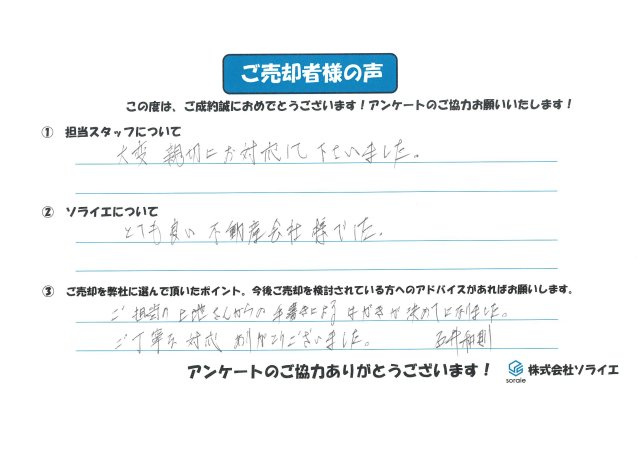 ご売却者様の声
この度は、ご成約誠におめでとうございます！アンケートのご協力お願いいたします！
① 担当スタッフについて
大変 親切にお対応して下さいました。
② ソライエについて
とても良い 不動産会社 様でした。
③ ご売却を弊社に選んで頂いたポイント。今後ご売却を検討されている方へのアドバイスがあればお願いします。
ご担当の さんからの 手書きによる はがきが 決めてになりました。
ご丁寧な 対応 ありがとうございました。
アンケートのご協力ありがとうございます！
soraie 株式会社ソライエ